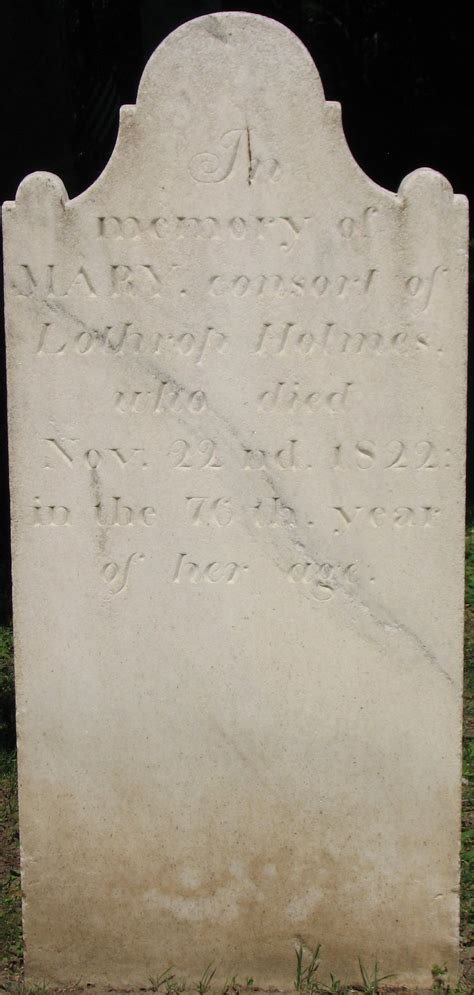 In
memory of
MARY, consort of
Lothrop Holmes.
who died
Nov. 22 nd. 1822:
in the 76 th. year
of her age.